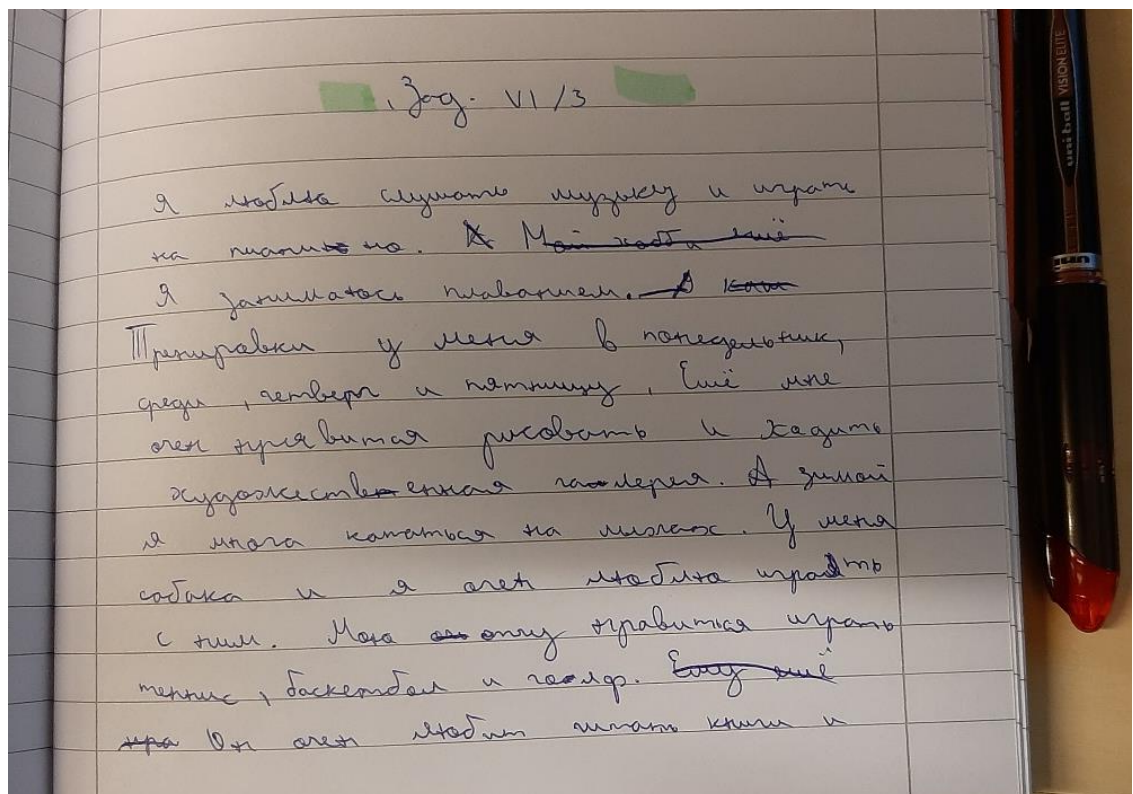 , Зад. VI/3
Я люблю слушать музыку и играть
на пианино. Я Мой хобби ещё
Я занимаюсь плаванием. Я как
Тренировки у меня в понедельник,
среди, четверг и пятницу, Ещё мне
очен нрявится рисовать и ходить
художественная галерея. А зимой
я многа кататься на лизах. У меня
собака и я очен люблю играть
с ним. Мою отцу нравится играть
теннис, баскетбол и гольф. Ему ещё
нра Он очен любит читать книги и
uni-ball VISION ELITE